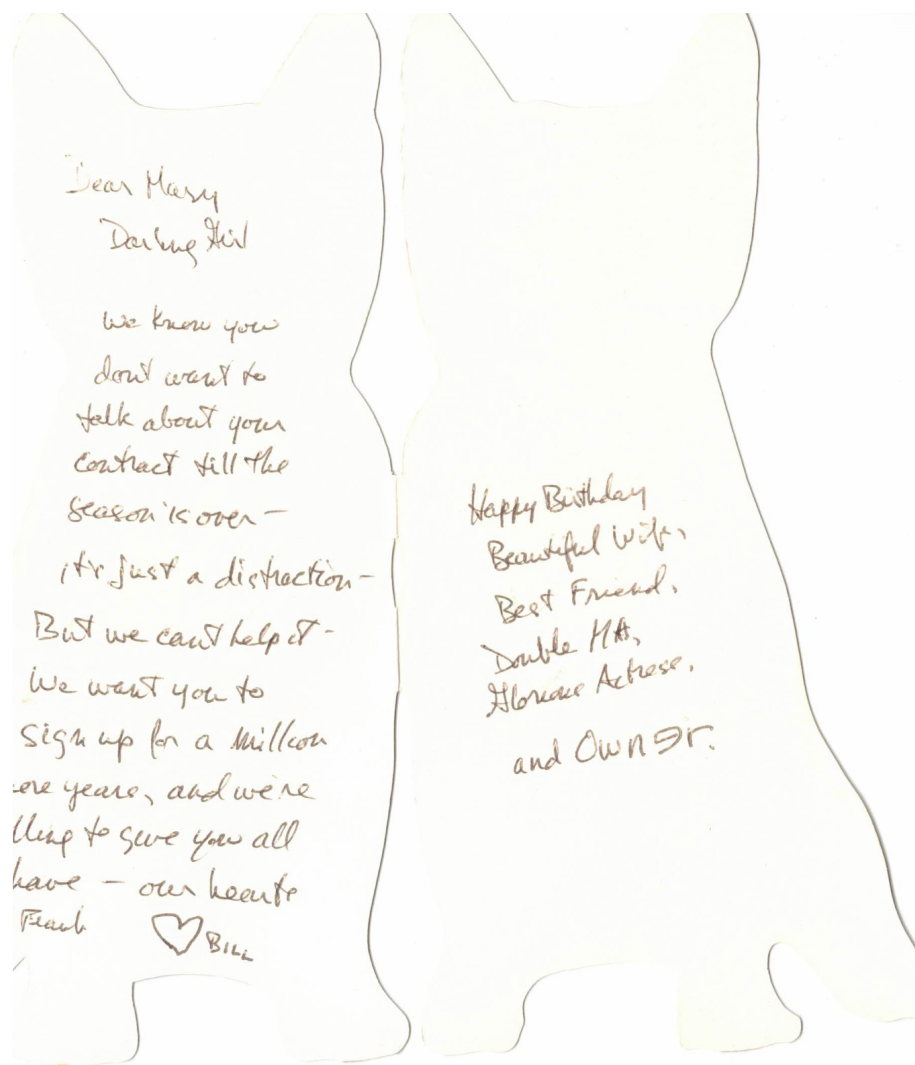 Dear Mary
Darling Girl
We know you
dont want to
talk about your
contract till the
season is over –
it's just a distraction –
But we cant help it –
We want you to
sign up for a million
ore years, and we're
lling to give you all
have – our hearts
Frank ♡ BILL
Happy Birthday
Beautiful Wife,
Best Friend,
Double MA,
Glorious Actress,
and Owner.